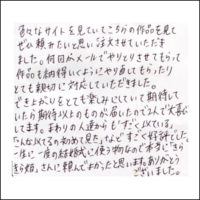 色々なサイトを見ていてこちらの作品を見て
ぜひ頼みたいと思い注文させていただき
ました。何回かメールでやりとりさせてもらって
作品も納得いくようにやり直してもらったり
とても親切に対応していただきました。
できあがりをとても楽しみにしていて期待して
いたら期待以上のものが届いたので2人で大喜び
してます。まわりの人達からも"すごく似ている"
"こんな似てるの初めて見た"など すごく好評でした
一生に一度の結婚式に使う物なので本当に"きら
きら姫"さんに頼んでよかったと思います。ありがとう
ございました。